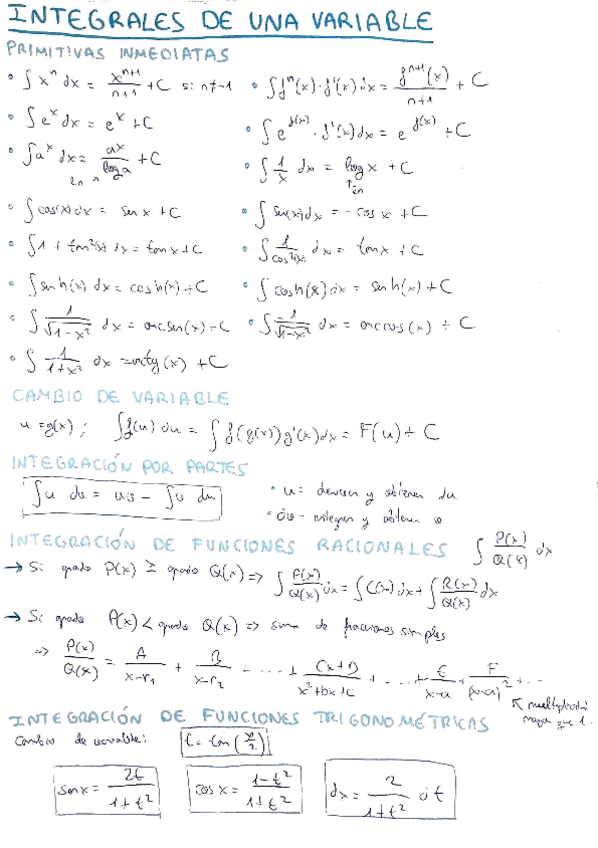 INTEGRALES DE UNA VARIABLE
PRIMITIVAS INMEDIATAS
• ∫ xⁿ dx = xⁿ⁺¹/(n+1) + C si n≠-1 • ∫ fⁿ(x)·f'(x) dx = fⁿ⁺¹(x)/(n+1) + C
• ∫ eˣ dx = eˣ + C • ∫ e^f(x) · f'(x) dx = e^f(x) + C
• ∫ aˣ dx = aˣ/log a + C • ∫ 1/x dx = log x + C
ln ↗ ↑ ln
• ∫ cos(x) dx = sen x + C • ∫ sen(x) dx = - cos x + C
• ∫ 1 + tan²(x) dx = tan x + C • ∫ 1/cos²(x) dx = tan x + C
• ∫ senh(x) dx = cosh(x) + C • ∫ cosh(x) dx = senh(x) + C
• ∫ 1/√(1-x²) dx = arcsen(x) + C • ∫ -1/√(1-x²) dx = arccos(x) + C
• ∫ 1/(1+x²) dx = arctg(x) + C
CAMBIO DE VARIABLE
u = g(x) ; ∫ f(u) du = ∫ f(g(x)) g'(x) dx = F(u) + C
INTEGRACIÓN POR PARTES
∫ u dv = uv - ∫ v du • u = derivan y obtienen du
• dv = integran y obtienen v
INTEGRACIÓN DE FUNCIONES RACIONALES ∫ P(x)/Q(x) dx
→ Si grado P(x) ≥ grado Q(x) => ∫ P(x)/Q(x) dx = ∫ C(x) dx + ∫ R(x)/Q(x) dx
→ Si grado P(x) < grado Q(x) => suma de fracciones simples
=> P(x)/Q(x) = A/(x-r₁) + B/(x-r₂) + ... + (Cx+D)/(x²+bx+c) + ... + E/(x-a) + F/(x-a)² + ...
↖ multiplicidad
mayor que 1.
INTEGRACIÓN DE FUNCIONES TRIGONOMÉTRICAS
Cambio de variable: t = tan(x/2)
sen x = 2t/(1+t²) cos x = (1-t²)/(1+t²) dx = 2/(1+t²) dt